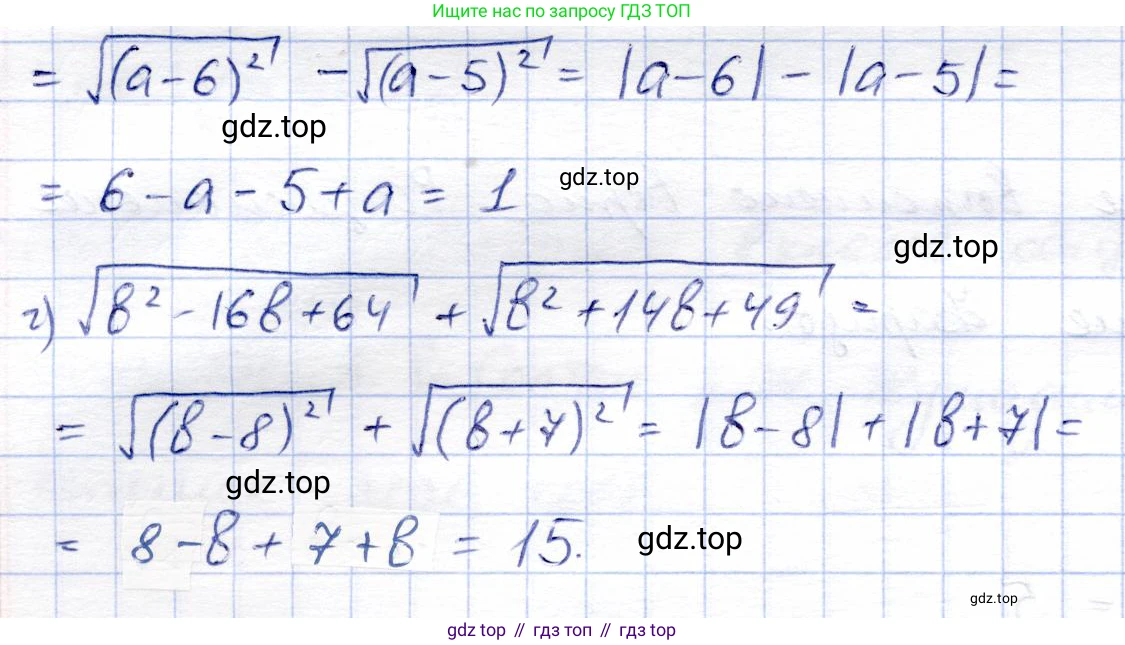 Ищите нас по запросу ГДЗ ТОП
= √(a-6)² - √(a-5)² = |a-6| - |a-5| =
gdz.top
= 6-a-5+a = 1 gdz.top
gdz.top
г) √в²-16в+64 + √в²+14в+49 =
= √(в-8)² + √(в+7)² = |в-8| + |в+7| =
gdz.top
= 8-в+7+в = 15. gdz.top
gdz.top
gdz top // гдз топ // гдз top